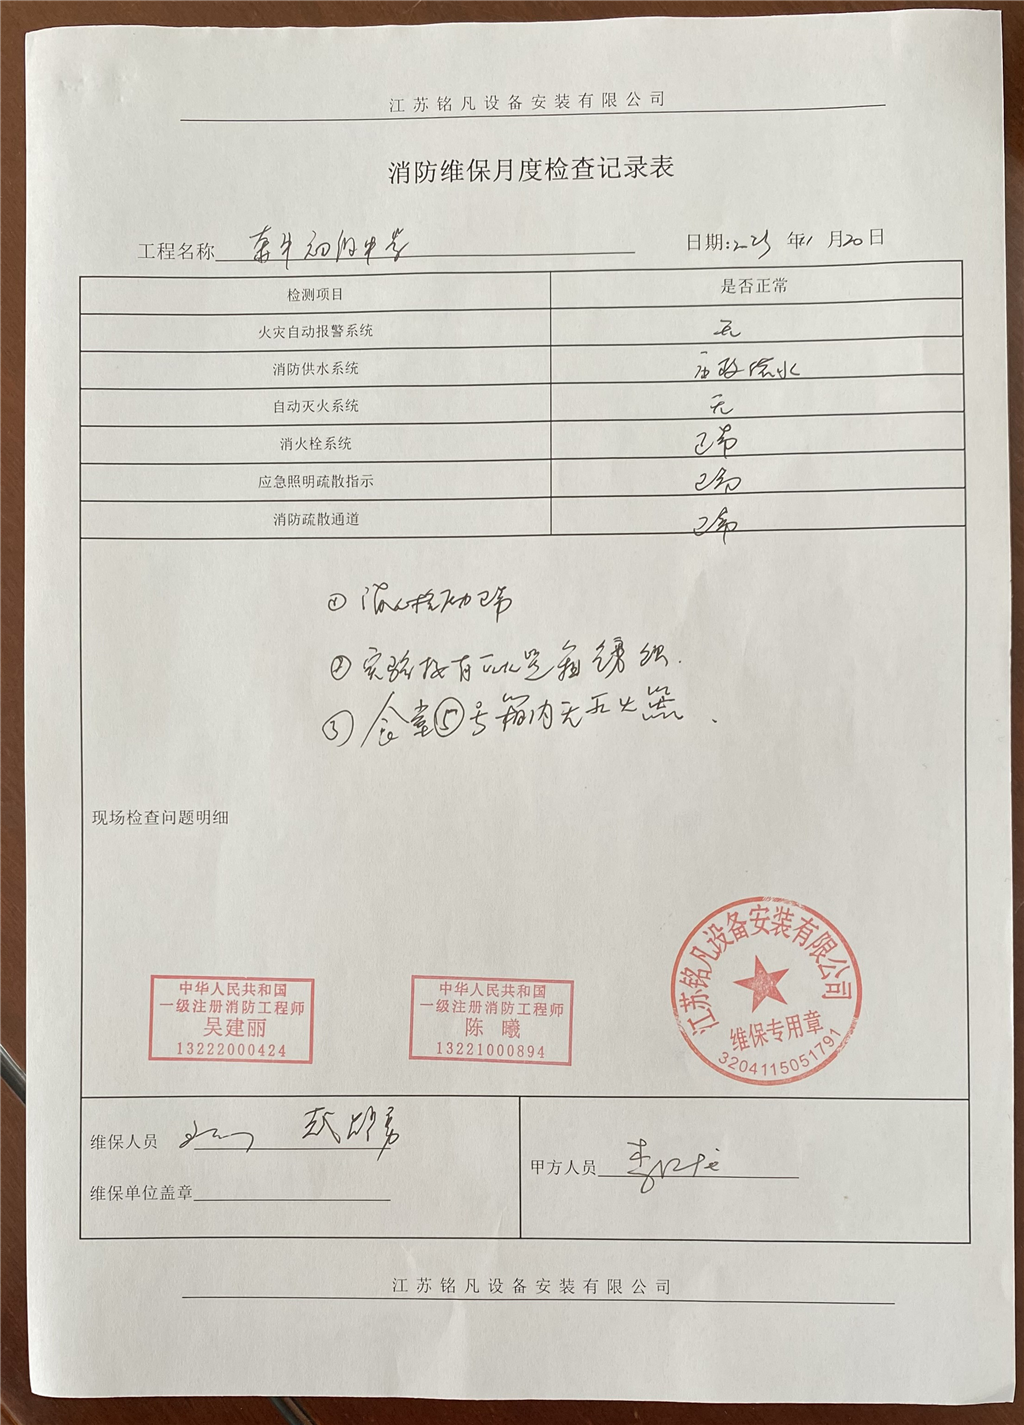 江苏铭凡设备安装有限公司
消防维保月度检查记录表
工程名称 奔牛初级中学 日期:2025年11月20日
检测项目 是否正常
火灾自动报警系统 无
消防供水系统 市政供水
自动灭火系统 无
消火栓系统 正常
应急照明疏散指示 正常
消防疏散通道 正常
① 消火栓压力正常
② 实验楼有 箱锈蚀.
③ 食堂⑤号箱内无灭火器.
现场检查问题明细
中华人民共和国
一级注册消防工程师
吴建丽
13222000424
中华人民共和国
一级注册消防工程师
陈 曦
13221000894
江苏铭凡设备安装有限公司
维保专用章
3204115051791
维保人员
甲方人员
维保单位盖章
江苏铭凡设备安装有限公司